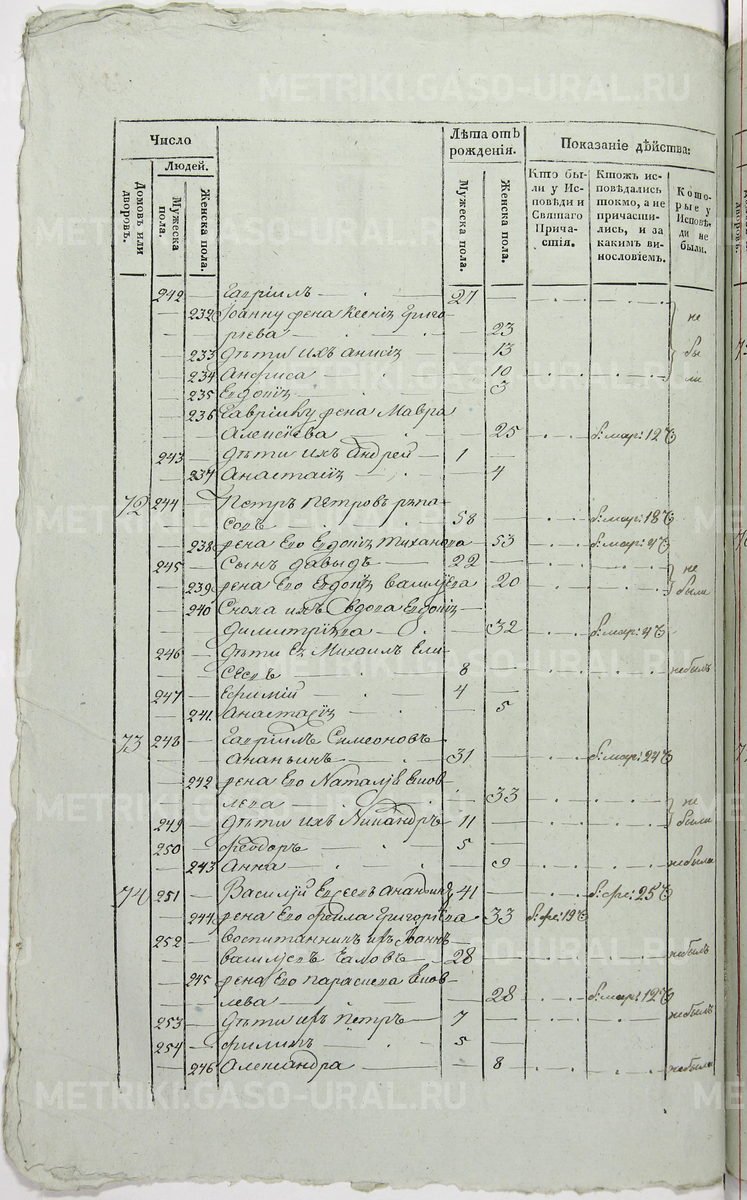 METRIKI.GASO-URAL.RU
Число
Людей.
Домовъ или дворовъ.
Мужеска пола.
Женска пола.
Лѣта отъ рожденія.
Мужеска пола.
Женска пола.
Показаніе дѣйства:
Кто были у Исповѣди и Святаго Причастія.
Ктожъ исповѣдались токмо, а не причастились, и за какимъ винословіемъ.
Которые у Исповѣди не были.
242 Гавріилъ 27
232 Іоанну жена Ксенія Григо
рьева 23 не
233 Дѣти ихъ Анисія 13 бы
234 Анфиса 10 ли
235 Евдокія 3
236 Гаврілку жена Мавра
Алексіева 25 б: мар: 12 б
243 Дѣти ихъ Андрей 1
237 Анастасія 4
72 244 Петръ Петровъ
58 б: мар: 18 б
238 жена Его Евдокія Тиханова 53 б: мар: 4 б
245 Сынъ Давыдъ 22 не
239 жена Его Евдокія Василіева 20 были
240 Сноха ихъ Вдова Евдокія
Димитріева 32 б: мар: 4 б
246 Дѣти Ея Михаилъ Ели
сеевъ 8 небылъ
247 Ефимій 4
241 Анастасія 5
73 248 Гавріилъ Симеоновъ
Ананьинъ 31 б: мар: 24 б
242 жена Его Наталія Яков
лева 33 не
249 Дѣти ихъ Никандръ 11 были
250 Ѳеодоръ 5
243 Анна 9 небыла
74 251 Василій Евсеевъ Ананьинъ 41 б: фе: 25 б
244 жена Его Григоріева 33 б: фе: 19 б
252 Воспитанникъ ихъ Іоаннъ
28 небылъ
245 жена Его Параскева Яков
лева 28 б: мар: 12 б
253 Дѣти ихъ Петръ 7 небылъ
254 Филипъ 5
246 Александра 8 небыла